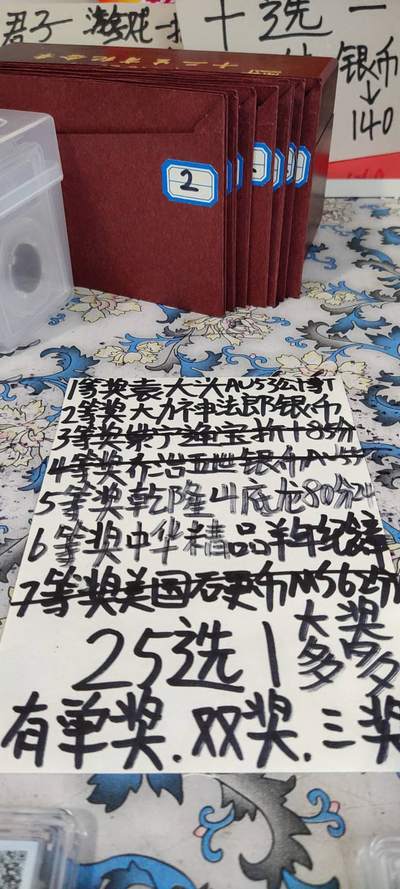 君子 游戏一
十选一
银币
↓
140
十二生肖纪念章
2
1等奖袁大头AU53公博
2等奖大力神法郎银币
3等奖崇宁通宝折十85分
4等奖乔治五世银币AU55
5等奖乾隆 龙80分
6等奖中华精品羊年纪
7等奖美国 币MS62分
25选1 大奖
多多
有单奖.双奖.三奖